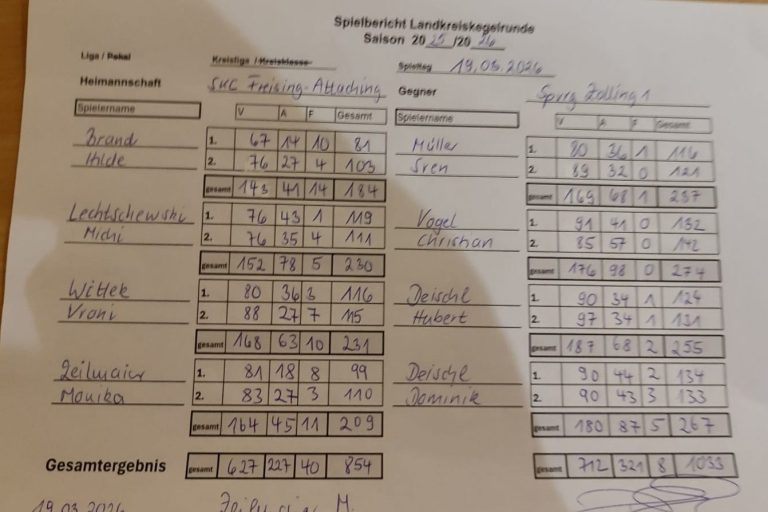 Spielbericht Landkreiskegelrunde
Saison 20 25 /20 26
Liga / Pokal Kreisliga / Kreisklasse Spieltag 19.03.2026
Heimannschaft SKC Freising-Attaching Gegner Spvgg Zolling 1
Spielername V A F Gesamt Spielername V A F Gesamt
Brand 1. 67 14 10 81 Müller 1. 80 36 1 116
Hilde 2. 76 27 4 103 Sven 2. 89 32 0 121
gesamt 143 41 14 184 gesamt 169 68 1 237
Lechtschewski 1. 76 43 1 119 Vogel 1. 91 41 0 132
Michi 2. 76 35 4 111 Christian 2. 85 57 0 142
gesamt 152 78 5 230 gesamt 176 98 0 274
Wittek 1. 80 36 3 116 Deischl 1. 90 34 1 124
Vroni 2. 88 27 7 115 Hubert 2. 97 34 1 131
gesamt 168 63 10 231 gesamt 187 68 2 255
Zeilmaier 1. 81 18 8 99 Deischl 1. 90 44 2 134
Monika 2. 83 27 3 110 Dominik 2. 90 43 3 133
gesamt 164 45 11 209 gesamt 180 87 5 267
Gesamtergebnis gesamt 627 227 40 854 gesamt 712 321 8 1033
19.03.2026 M.